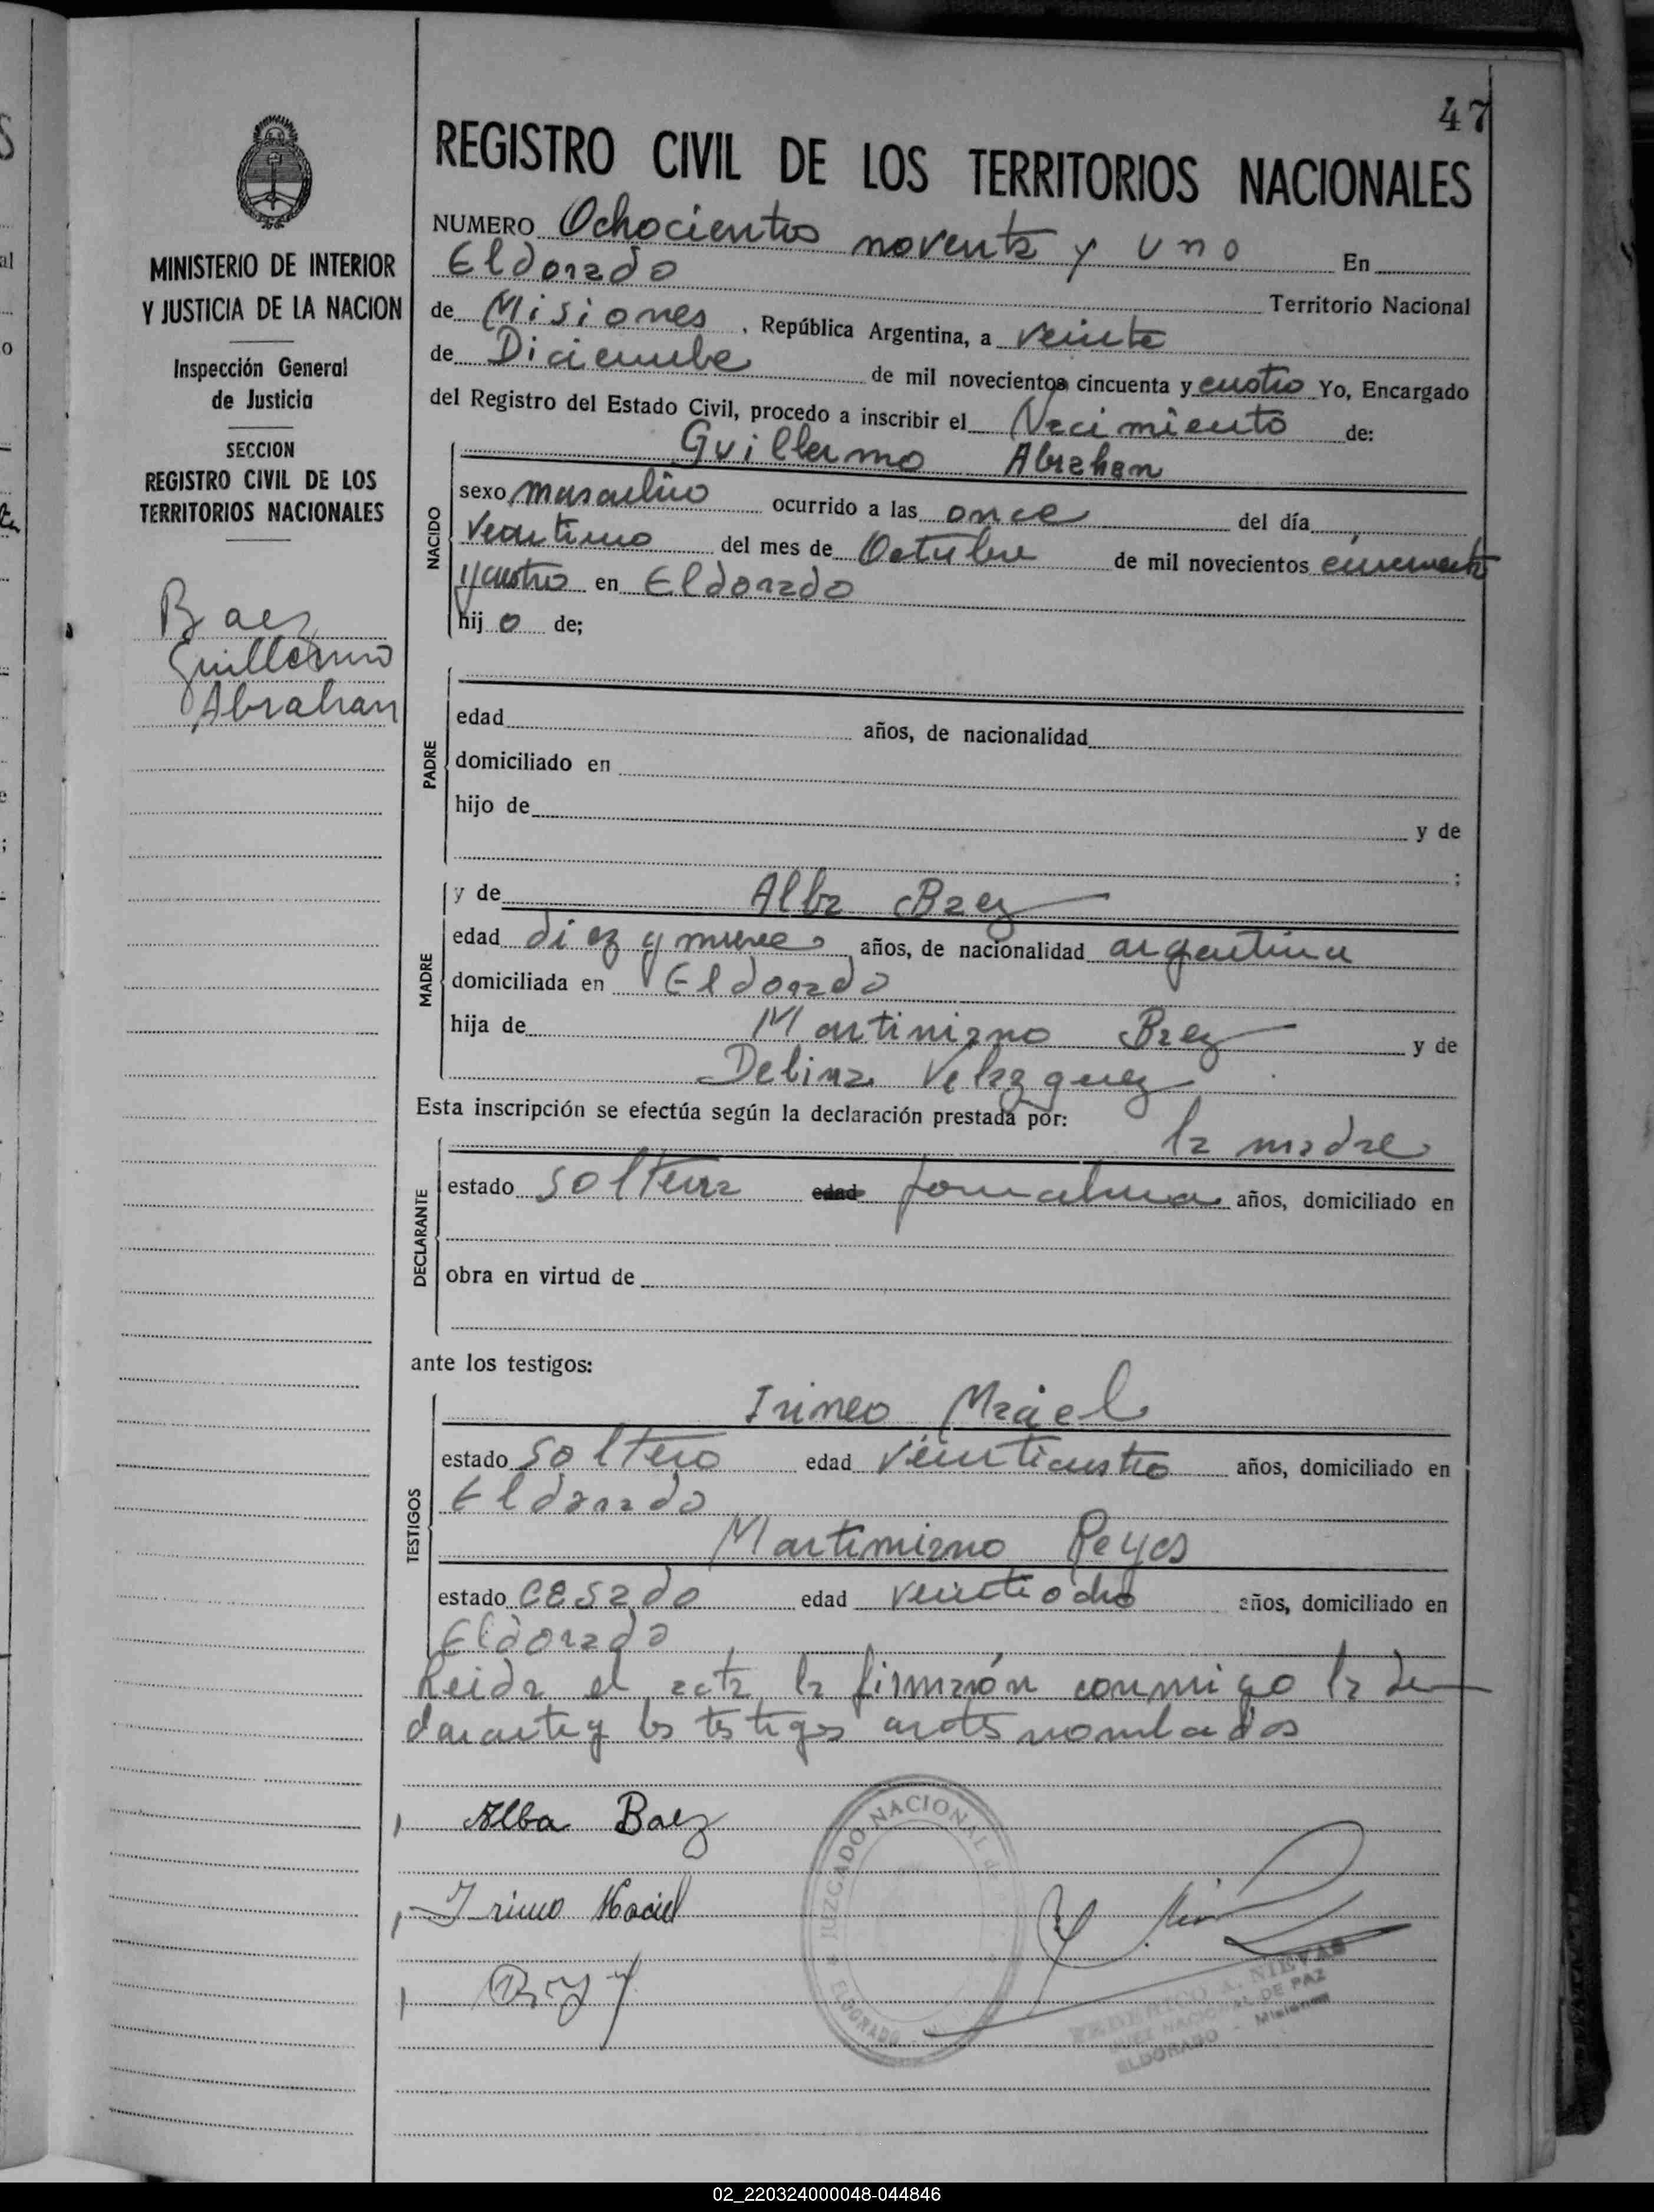 47
REGISTRO CIVIL DE LOS TERRITORIOS NACIONALES
MINISTERIO DE INTERIOR
Y JUSTICIA DE LA NACION
Inspección General
de Justicia
SECCION
REGISTRO CIVIL DE LOS
TERRITORIOS NACIONALES
Baez
Guillermo
Abrahan
NUMERO Ochocientos noventa y uno En
Eldorado Territorio Nacional
de Misiones, República Argentina, a veinte
de Diciembe de mil novecientos cincuenta y cuatro Yo, Encargado
del Registro del Estado Civil, procedo a inscribir el Nacimiento de:
NACIDO
Guillermo Abrahan
sexo masculino ocurrido a las once del día
veintiuno del mes de Octubre de mil novecientos cincuenta
y cuatro en Eldorado
hij o de;
PADRE
edad años, de nacionalidad
domiciliado en
hijo de y de
;
MADRE
y de Alba Baez
edad diez y nueve años, de nacionalidad argentina
domiciliada en Eldorado
hija de Martiniano Baez y de
Delina Velazquez
Esta inscripción se efectúa según la declaración prestada por:
DECLARANTE
la madre
estado soltera edad años, domiciliado en
obra en virtud de
ante los testigos:
TESTIGOS
Irineo Maciel
estado soltero edad veinticuatro años, domiciliado en
Eldorado
Martimiano Reyes
estado casado edad veintiocho años, domiciliado en
Eldorado
Leida el acta la firmarón conmigo la de
clarante y los testigos antes nombrados
Alba Baez
Irineo Maciel
JUZGADO NACIONAL de
ELDORADO
FEDERICO A. NIEVAS
JUEZ NACIONAL DE PAZ
ELDORADO - Misiones
02_220324000048-044846